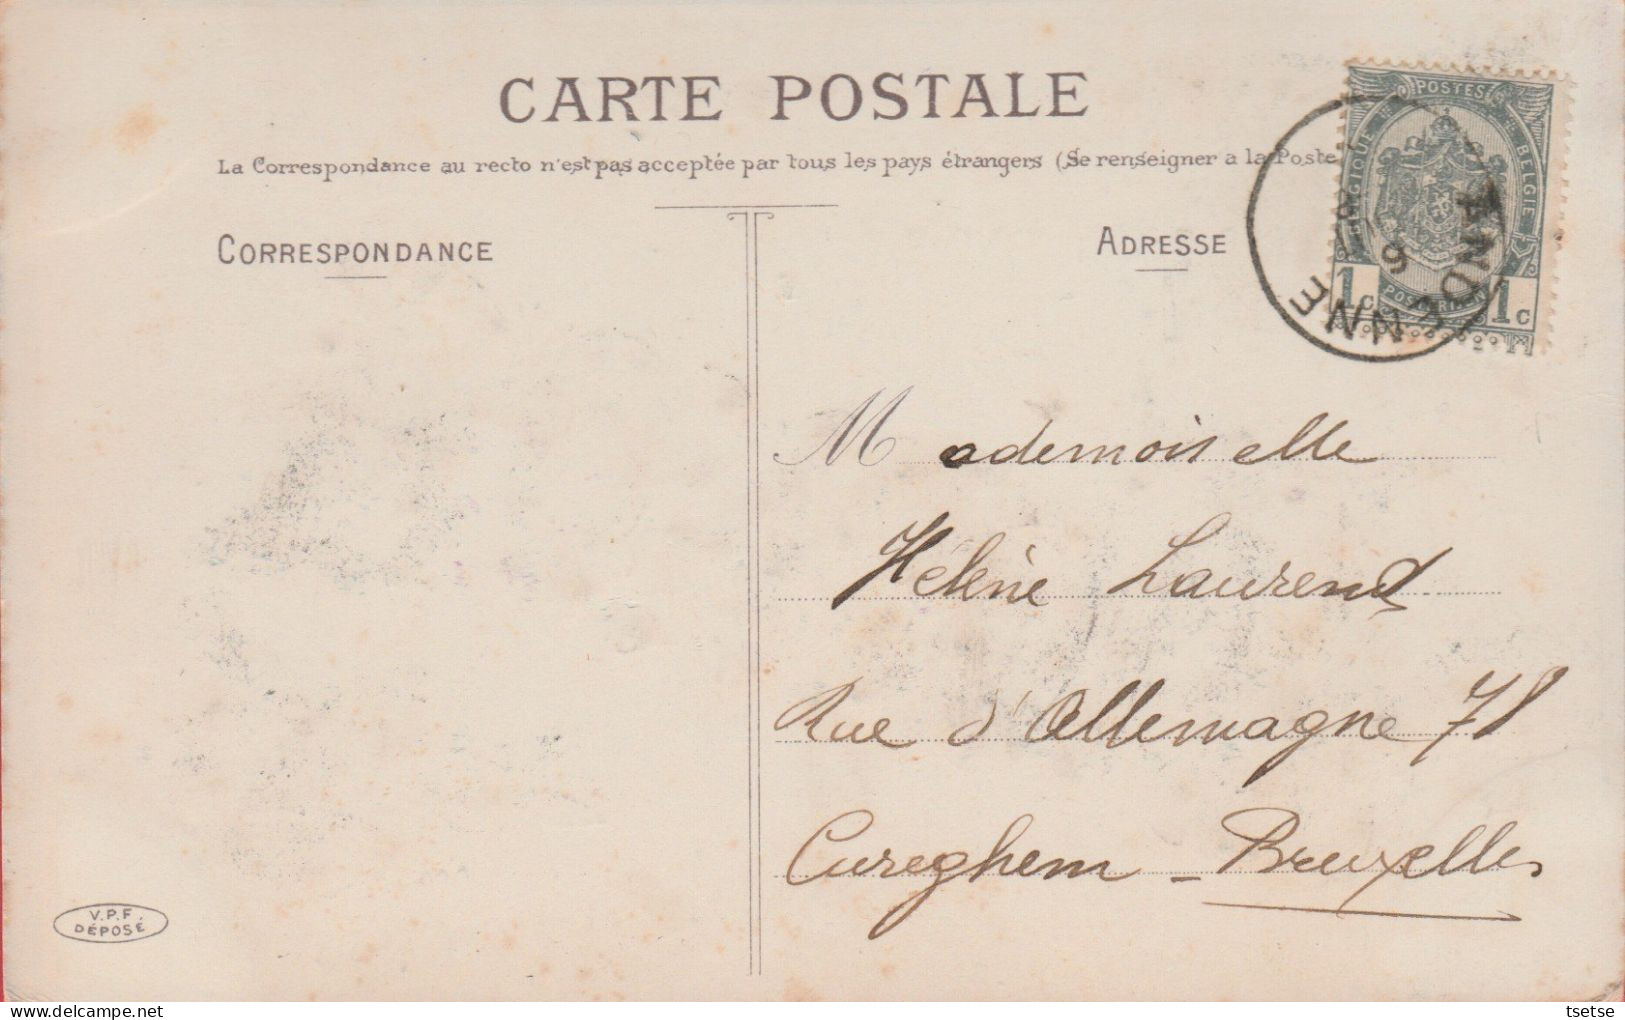 CARTE POSTALE
La Correspondance au recto n'est pas acceptée par tous les pays étrangers (Se renseigner a la Poste
CORRESPONDANCE
ADRESSE
POSTES
BELGIQUE
BELGIE
1 c
1 c
9
Mademoiselle
Hélène Laurend
Rue d'Allemagne 78
Cureghem - Bruxelles
V.P.F.
DÉPOSÉ
tsetse